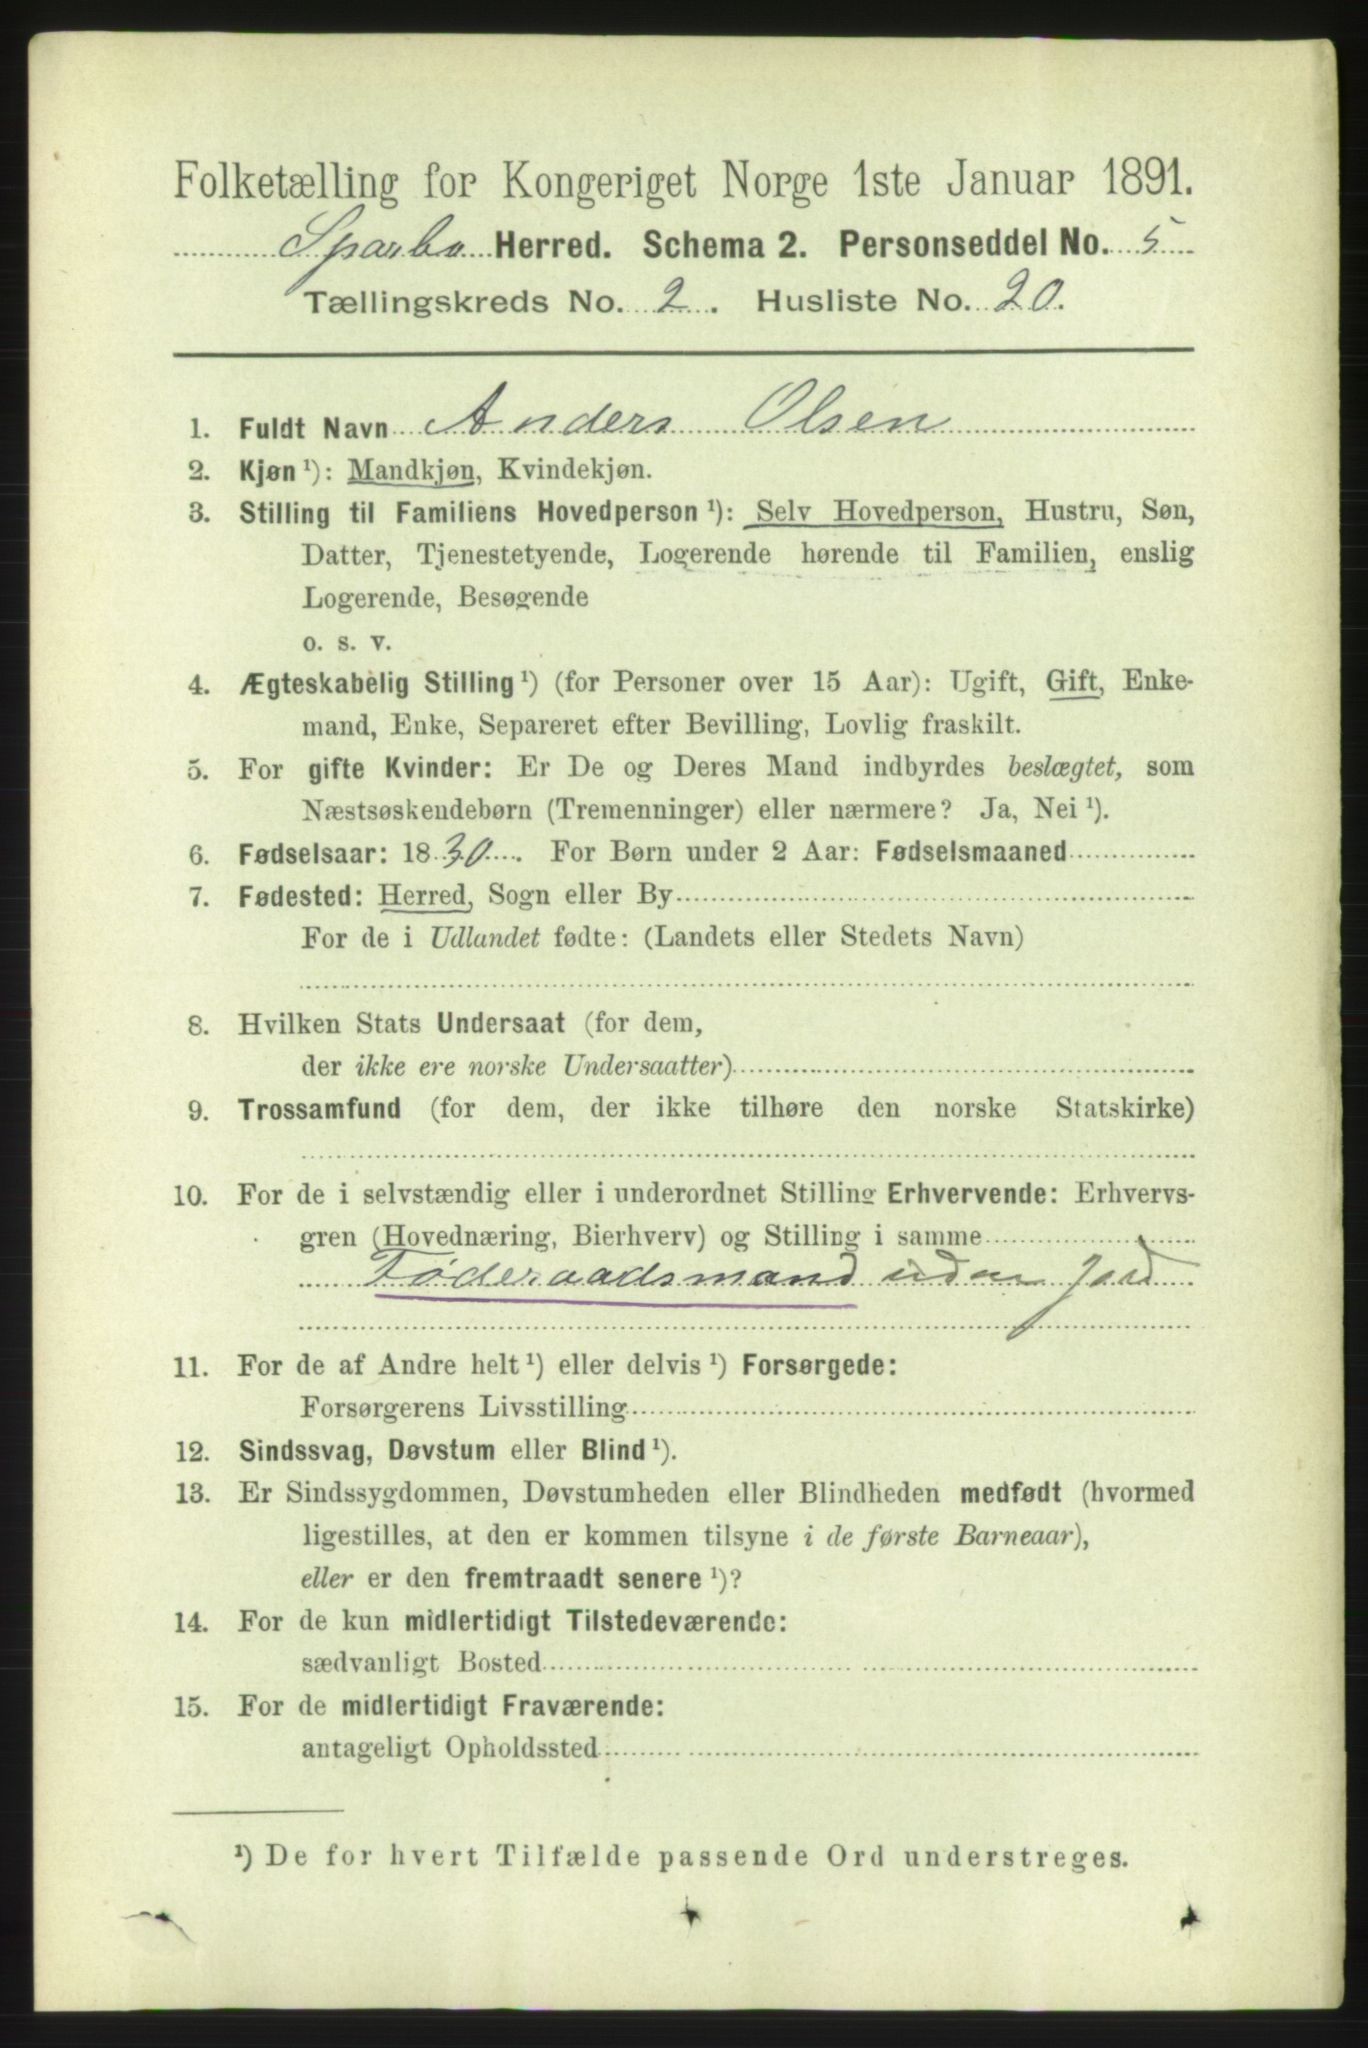 Folketælling for Kongeriget Norge 1ste Januar 1891.
Sparbo Herred. Schema 2. Personseddel No. 5
Tællingskreds No. 2. Husliste No. 20.
1. Fuldt Navn Anders Olsen
2. Kjøn ¹): Mandkjøn, Kvindekjøn.
3. Stilling til Familiens Hovedperson ¹): Selv Hovedperson, Hustru, Søn,
Datter, Tjenestetyende, Logerende hørende til Familien, enslig
Logerende, Besøgende
o. s. v.
4. Ægteskabelig Stilling ¹) (for Personer over 15 Aar): Ugift, Gift, Enke-
mand, Enke, Separeret efter Bevilling, Lovlig fraskilt.
5. For gifte Kvinder: Er De og Deres Mand indbyrdes beslægtet, som
Næstsøskendebørn (Tremenninger) eller nærmere? Ja, Nei ¹).
6. Fødselsaar: 1830. For Børn under 2 Aar: Fødselsmaaned
7. Fødested: Herred, Sogn eller By
For de i Udlandet fødte: (Landets eller Stedets Navn)
8. Hvilken Stats Undersaat (for dem,
der ikke ere norske Undersaatter)
9. Trossamfund (for dem, der ikke tilhøre den norske Statskirke)
10. For de i selvstændig eller i underordnet Stilling Erhvervende: Erhvervs-
gren (Hovednæring, Bierhverv) og Stilling i samme
Føderaadsmand uden Jord
11. For de af Andre helt ¹) eller delvis ¹) Forsørgede:
Forsørgerens Livsstilling
12. Sindssvag, Døvstum eller Blind ¹).
13. Er Sindssygdommen, Døvstumheden eller Blindheden medfødt (hvormed
ligestilles, at den er kommen tilsyne i de første Barneaar),
eller er den fremtraadt senere ¹)?
14. For de kun midlertidigt Tilstedeværende:
sædvanligt Bosted
15. For de midlertidigt Fraværende:
antageligt Opholdssted
¹) De for hvert Tilfælde passende Ord understreges.